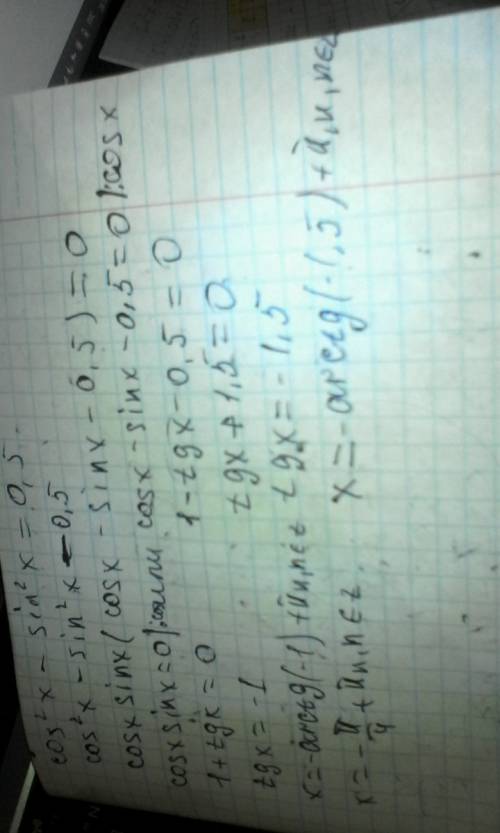 cos²x - sin²x = 0,5.
cos²x - sin²x - 0,5
cosx sinx ( cosx - sinx - 0,5 ) = 0
cosx sinx = 0 |: cosx или cosx - sinx - 0,5 = 0 |: cosx
1 + tgx = 0 1 - tgx - 0,5 = 0
tgx = -1 tgx + 1,5 = 0
x = -arctg(-1) + πn, n∈z tgx = -1,5
x = -π/4 + πn, n∈z x = -arctg(-1,5) + πn, n∈z